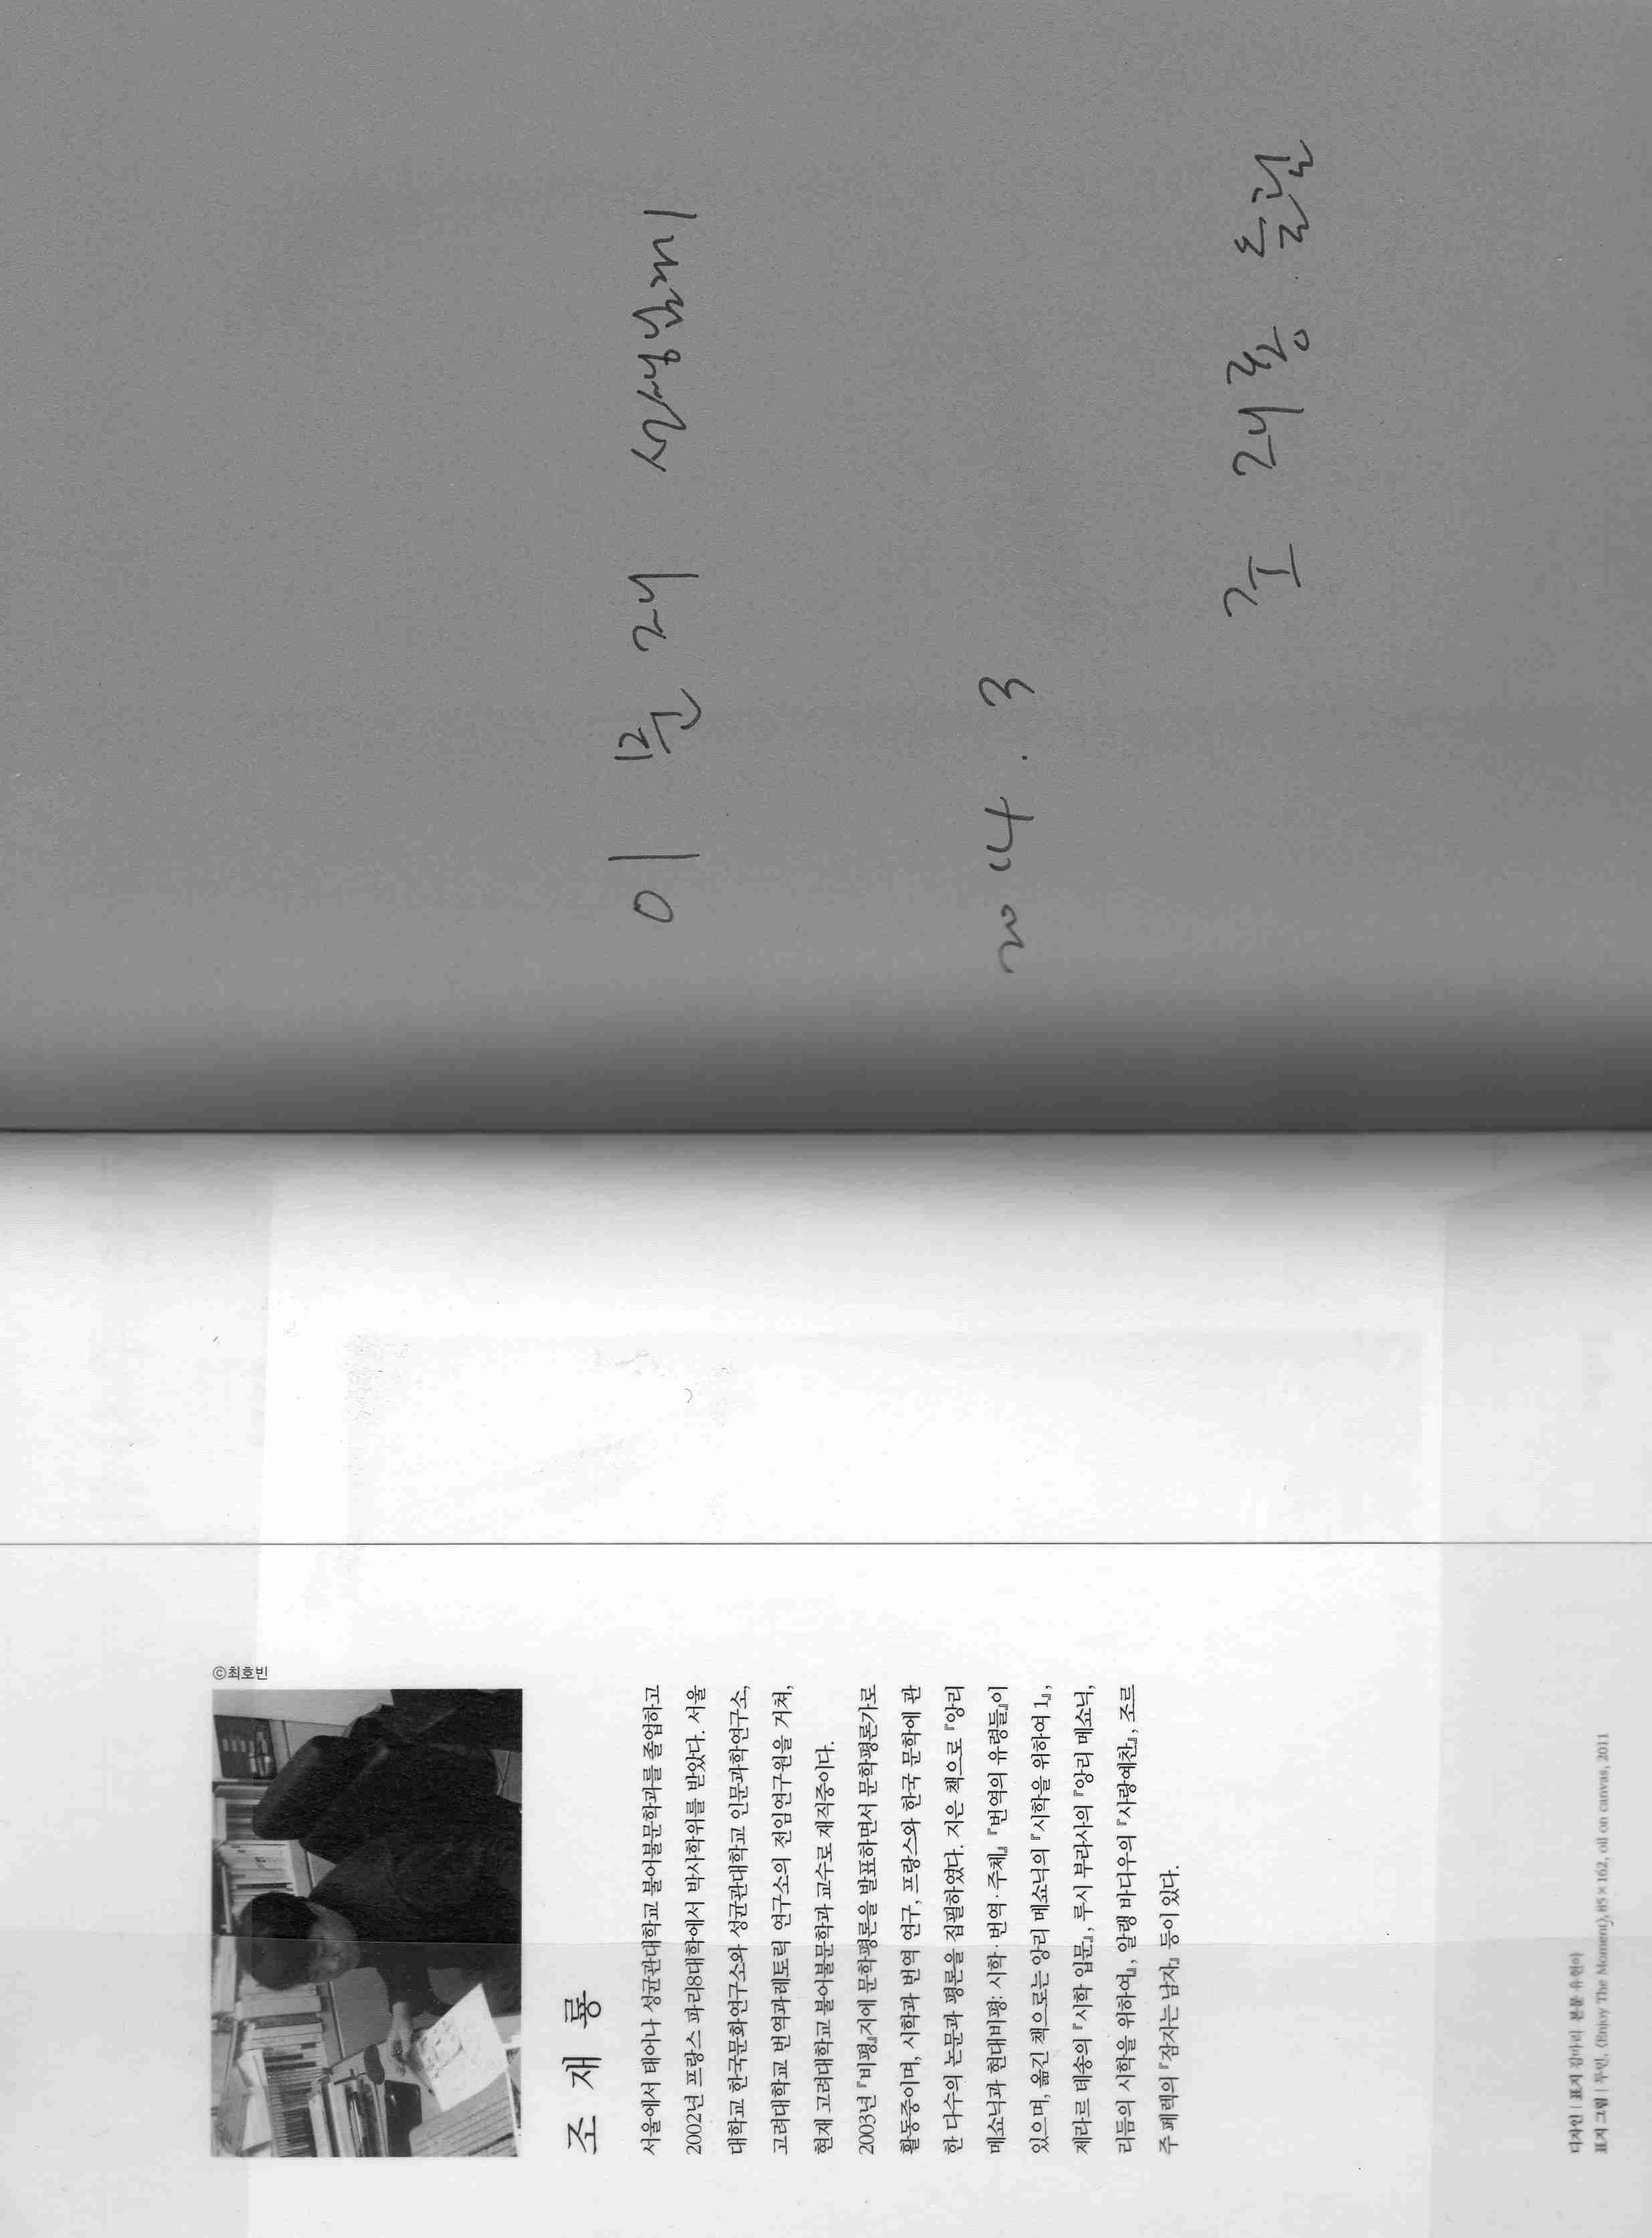 이문재 선생님께
2014. 3
조재룡 올림
©최호빈
조재룡
서울에서 태어나 성균관대학교 불어불문학과를 졸업하고
2002년 프랑스 파리8대학에서 박사학위를 받았다. 서울
대학교 한국문화연구소와 성균관대학교 인문과학연구소,
고려대학교 번역과레토릭 연구소의 전임연구원을 거쳐,
현재 고려대학교 불어불문학과 교수로 재직중이다.
2003년 『비평』지에 문학평론을 발표하면서 문학평론가로
활동중이며, 시학과 번역 연구, 프랑스와 한국 문학에 관
한 다수의 논문과 평론을 집필하였다. 지은 책으로 『앙리
메쇼닉과 현대비평: 시학·번역·주체』 『번역의 유령들』이
있으며, 옮긴 책으로는 앙리 메쇼닉의 『시학을 위하여 1』,
제라르 데송의 『시학 입문』, 루시 부라사의 『앙리 메쇼닉,
리듬의 시학을 위하여』, 알랭 바디우의 『사랑예찬』, 조르
주 페렉의 『잠자는 남자』 등이 있다.
디자인 | 표지 김마리 본문 유현아
표지 그림 | 두민, 〈Enjoy The Moment〉, 85×162, oil on canvas, 2011